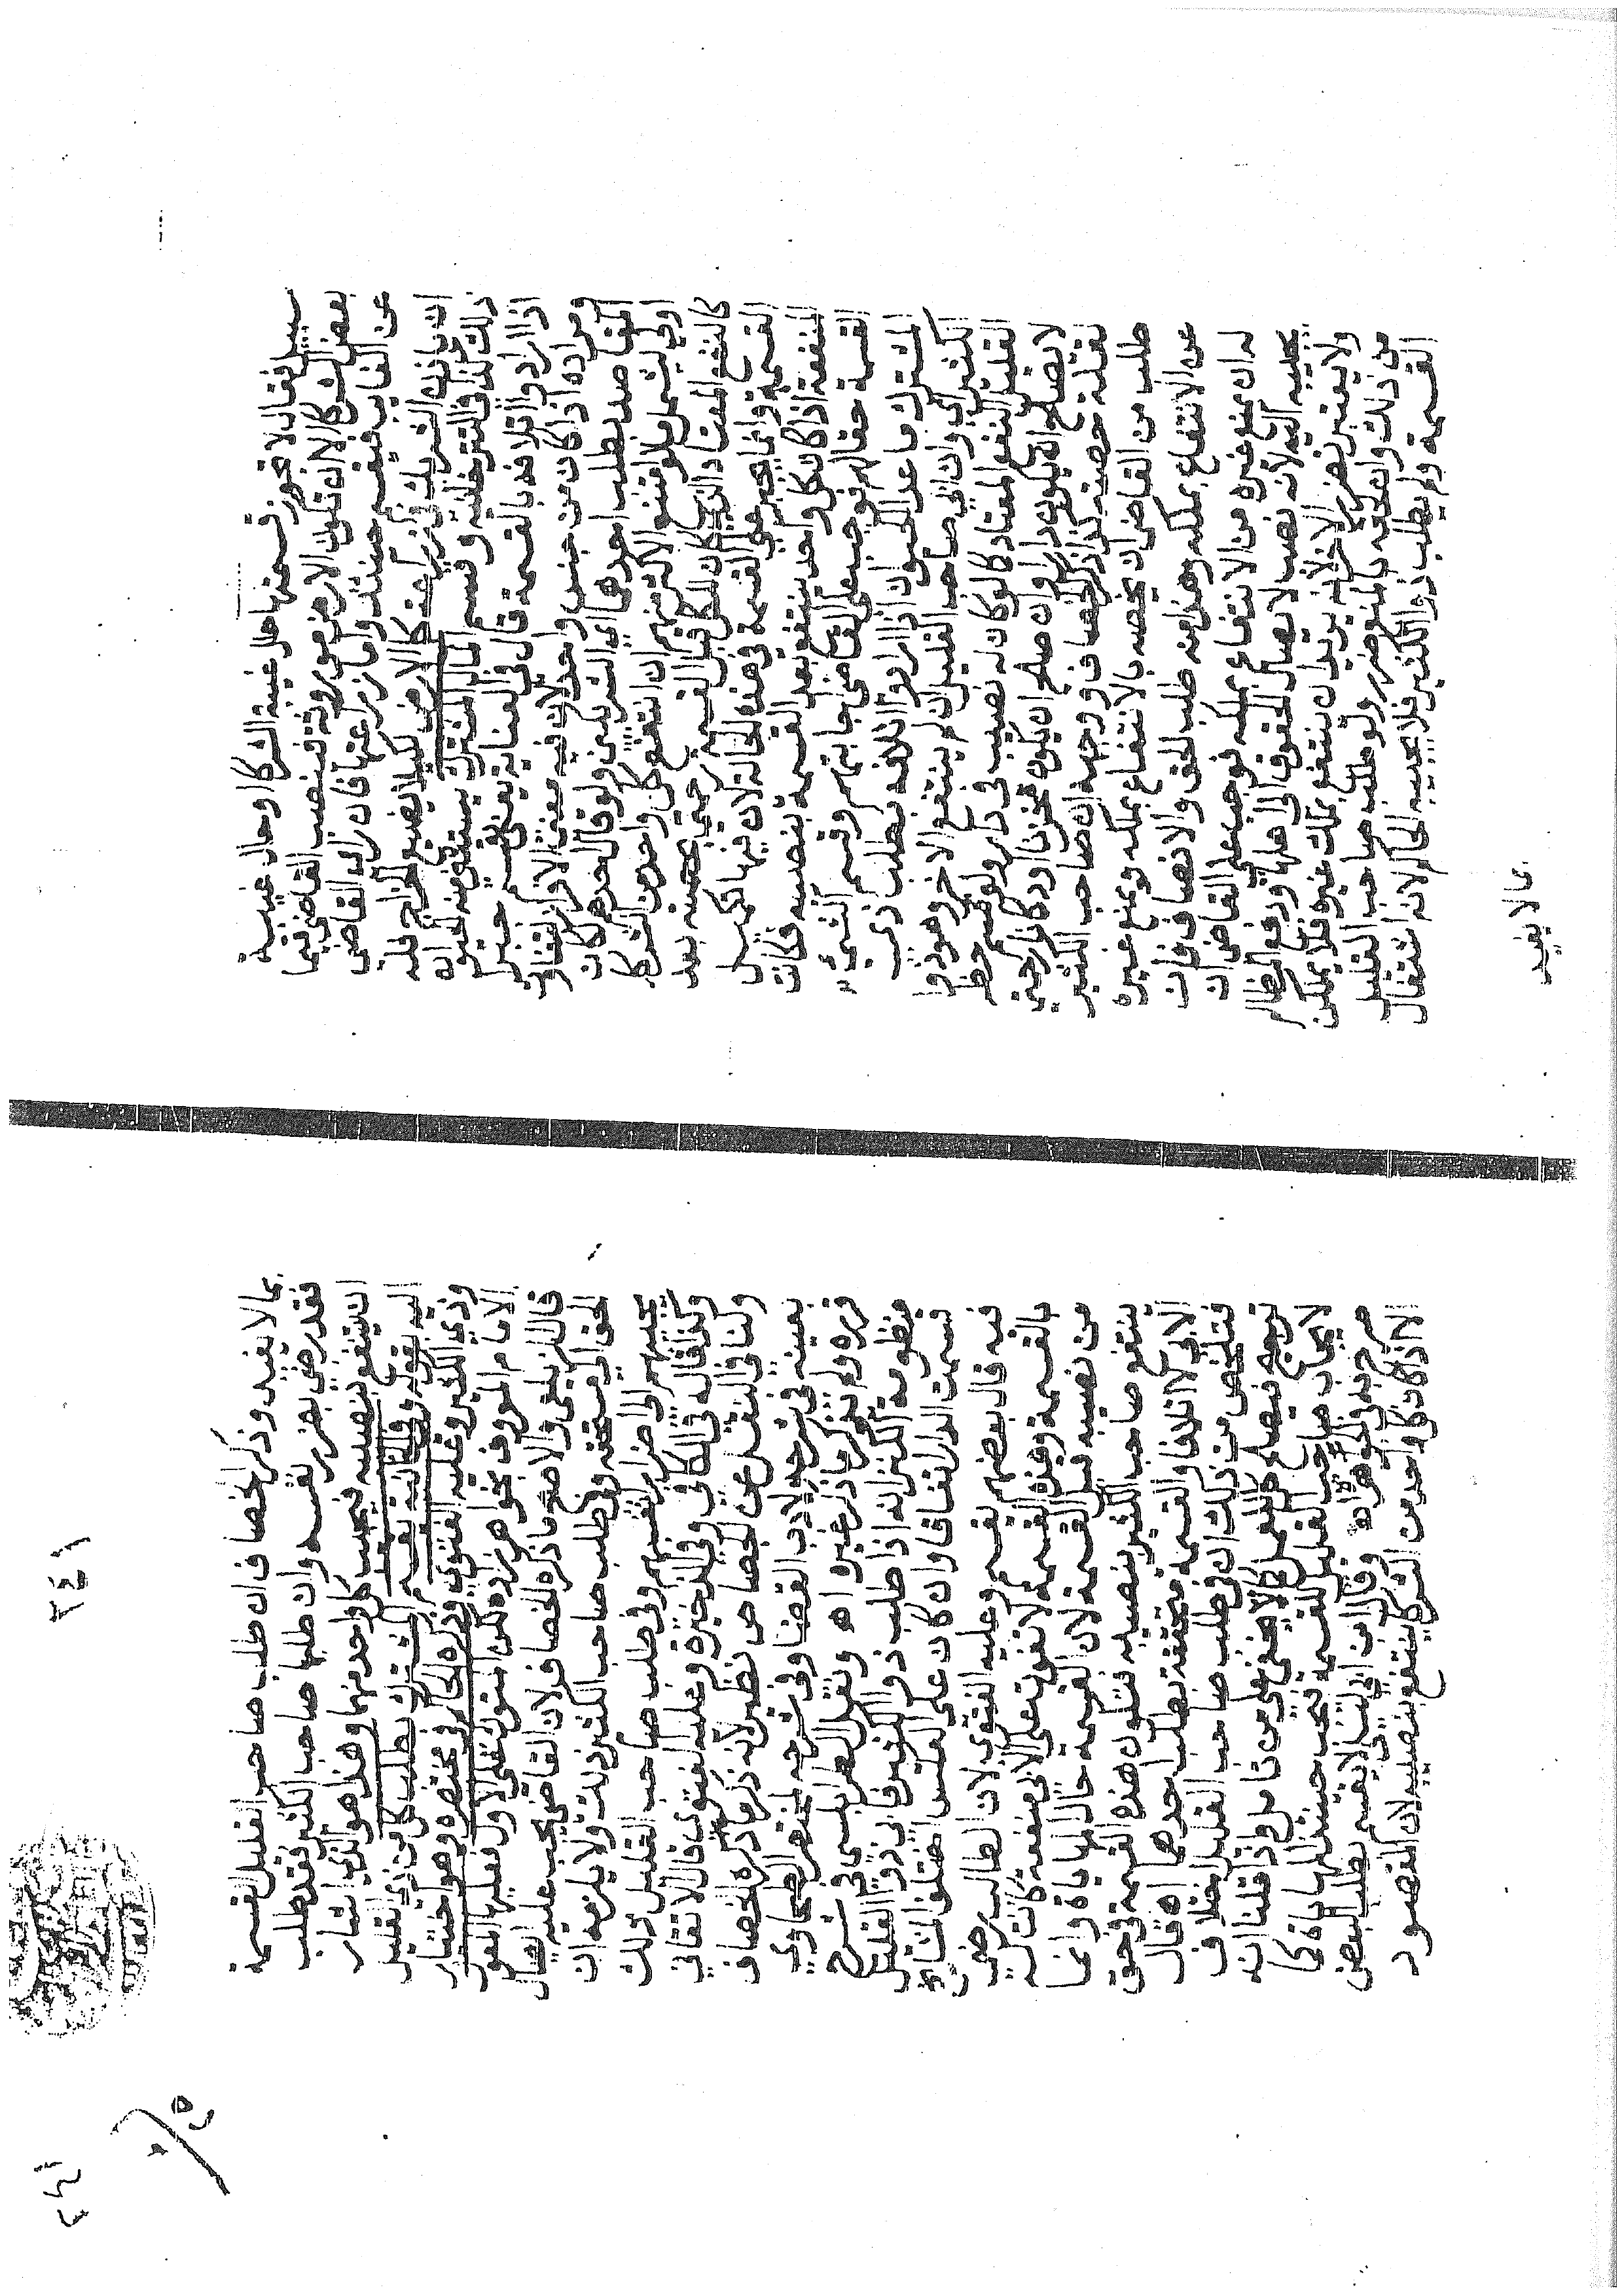 سبيل فقال لا تجوز قسمتها حال غيبة الشركا وحال غيبة
بعض الشركا الا ان تكون الارض موروثة فنصب القاضي قيما
عن الغايب فيقسم حينئذ واما زراعتها فان راى القاضي
ان ياذن الشريك في زراعة كل الارض لكيلا يضيع الخراج فله
ذلك كذا في التترخانية وقسم المال المشترك
اذا ارادوا القسمة قال في العناية يعني
ومراده اذا كان من جنس واحد لان فيه معنى الافراز لتفاوت
المقاصد بطلب احدهما اي الشريكين ولو قال احدهم لكان
اولى ليشمل ما لو امتنع الاكثر منهم ان انتفع كل واحد من الشركا
كالنفع المعتاد الذي كان للكل قبل القسمة بحصته بعد
القسمة وانما يجبر على القسمة في هذه الحالة لان فيها تكميل
المنفعة اذا كان كل واحد ينتفع بعد القسمة بنصيبه وكانت
القسمة حقا لهم فوجب على القاضي اجابتهم وقسم الشيء
المشترك ما عدا الحيوان اذا ارادوا بطلب ذي
الكثير اي وان ابى صاحب القليل ان لم ينتفع الاخر وهو ذو
القليل النفع المعتاد كما لو كان له نصيب في دار ولو قسم حظه
لا يصلح ان يكون دارا وان صلح ان يكون مخزنا او دكانا حتى
لقلة حصته كذا ذكر الخصاف ووجهه ان صاحب الكثير
طلب من القاضي ان يخصه بالانتفاع بملكه ويمنع غيره
عن الانتفاع بملكه وهذا منه طلب الحق والانصاف فان
له ان يمنع غيره من الانتفاع بملكه فوجب على القاضي ان
يجيبه اليه لانه نصب لايصال الحقوق الى اهلها ودفع المظالم
ولا يعتبر تضرر الاخر لانه يريد ان ينتفع بملك غيره فلا يمكن
من ذلك وان لحقه بالمنع ضرر ولو طلب صاحب القليل
القسمة ولم يطلب ذو الكثير فلا يجيبه الحاكم لانه اشتغال
بما لا يفيد
٢٤١
بما لا يفيد وذكر الخصاف ان طلب صاحب القليل القسمة
فقد رضي بضرر نفسه وان طلبها صاحب الكثير فقد طلب
ان ينتفع بنصيبه فيجب كل واحد منهما وهذا هو الذي اشار
اليه بقوله وفي الخانية يقسم المشترك بطلب كل من ذي القليل
وذي الكثير وعليه الفتوى وذكره الحاكم في مختصره وهو اختيار
الامام المعروف بخواهر زاده لكن المتون على الاول فعليها المعول
قال الزيلعي والاصح ما ذكره الخصاف لان القاضي يجب عليه ايصال
الحق الى مستحقه وفي طلب صاحب الكثير ذلك ولا يلزمه ان
يجيبهم الى اضرار انفسهم وفي طلب صاحب القليل ذلك
وكذا قاله في الكافي وفي الذخيرة وعليه الفتوى قال الاتقاني
ولنا في النقل عن الجصاص نظر لانه ذكر ما ذكره الخصاف
بعينه في شرحه لادب القضا وفي شرحه لمختصر الطحاوي
وغيره ولم يذكر ما ذكر غيره اهـ ونقل الطرابلسي في شرح
منظومة الكنز انه اذا طلب ذو الكثير فابى ذو القليل
قسمت الدار اتفاقا وان كان على العكس اختلف المشايخ
فيه قال بعضهم يقسم وعليه الفتوى لان الطالب رضي
بالقسمة وهذه القسمة لا تفوت على الابي منفعة كانت له
من نصيبه قبل القسمة لان القسمة حال المهاياة وانما
ينتفع صاحب الكثير بنصيبه فتكون هذه القسمة في حق
الابي لا اتلافا والقسمة متحققة بطلب احدهما اهـ قال
فتلخص من ذلك ان في طلب صاحب القليل اختلاف
ترجيح فيصلح العمل كما لا يخفى على من تامل واذا قلنا انه
لا يجاب صاحب القليل للقسمة يجب حينئذ للمهاياة كما
صرح به في الجوهرة اهـ وقال ابن ابي ليلى لا يقسم بطلب البعض
الا اذا كان كل واحد من الشركا ينتفع بنصيبه لان المقصود
٢٤١